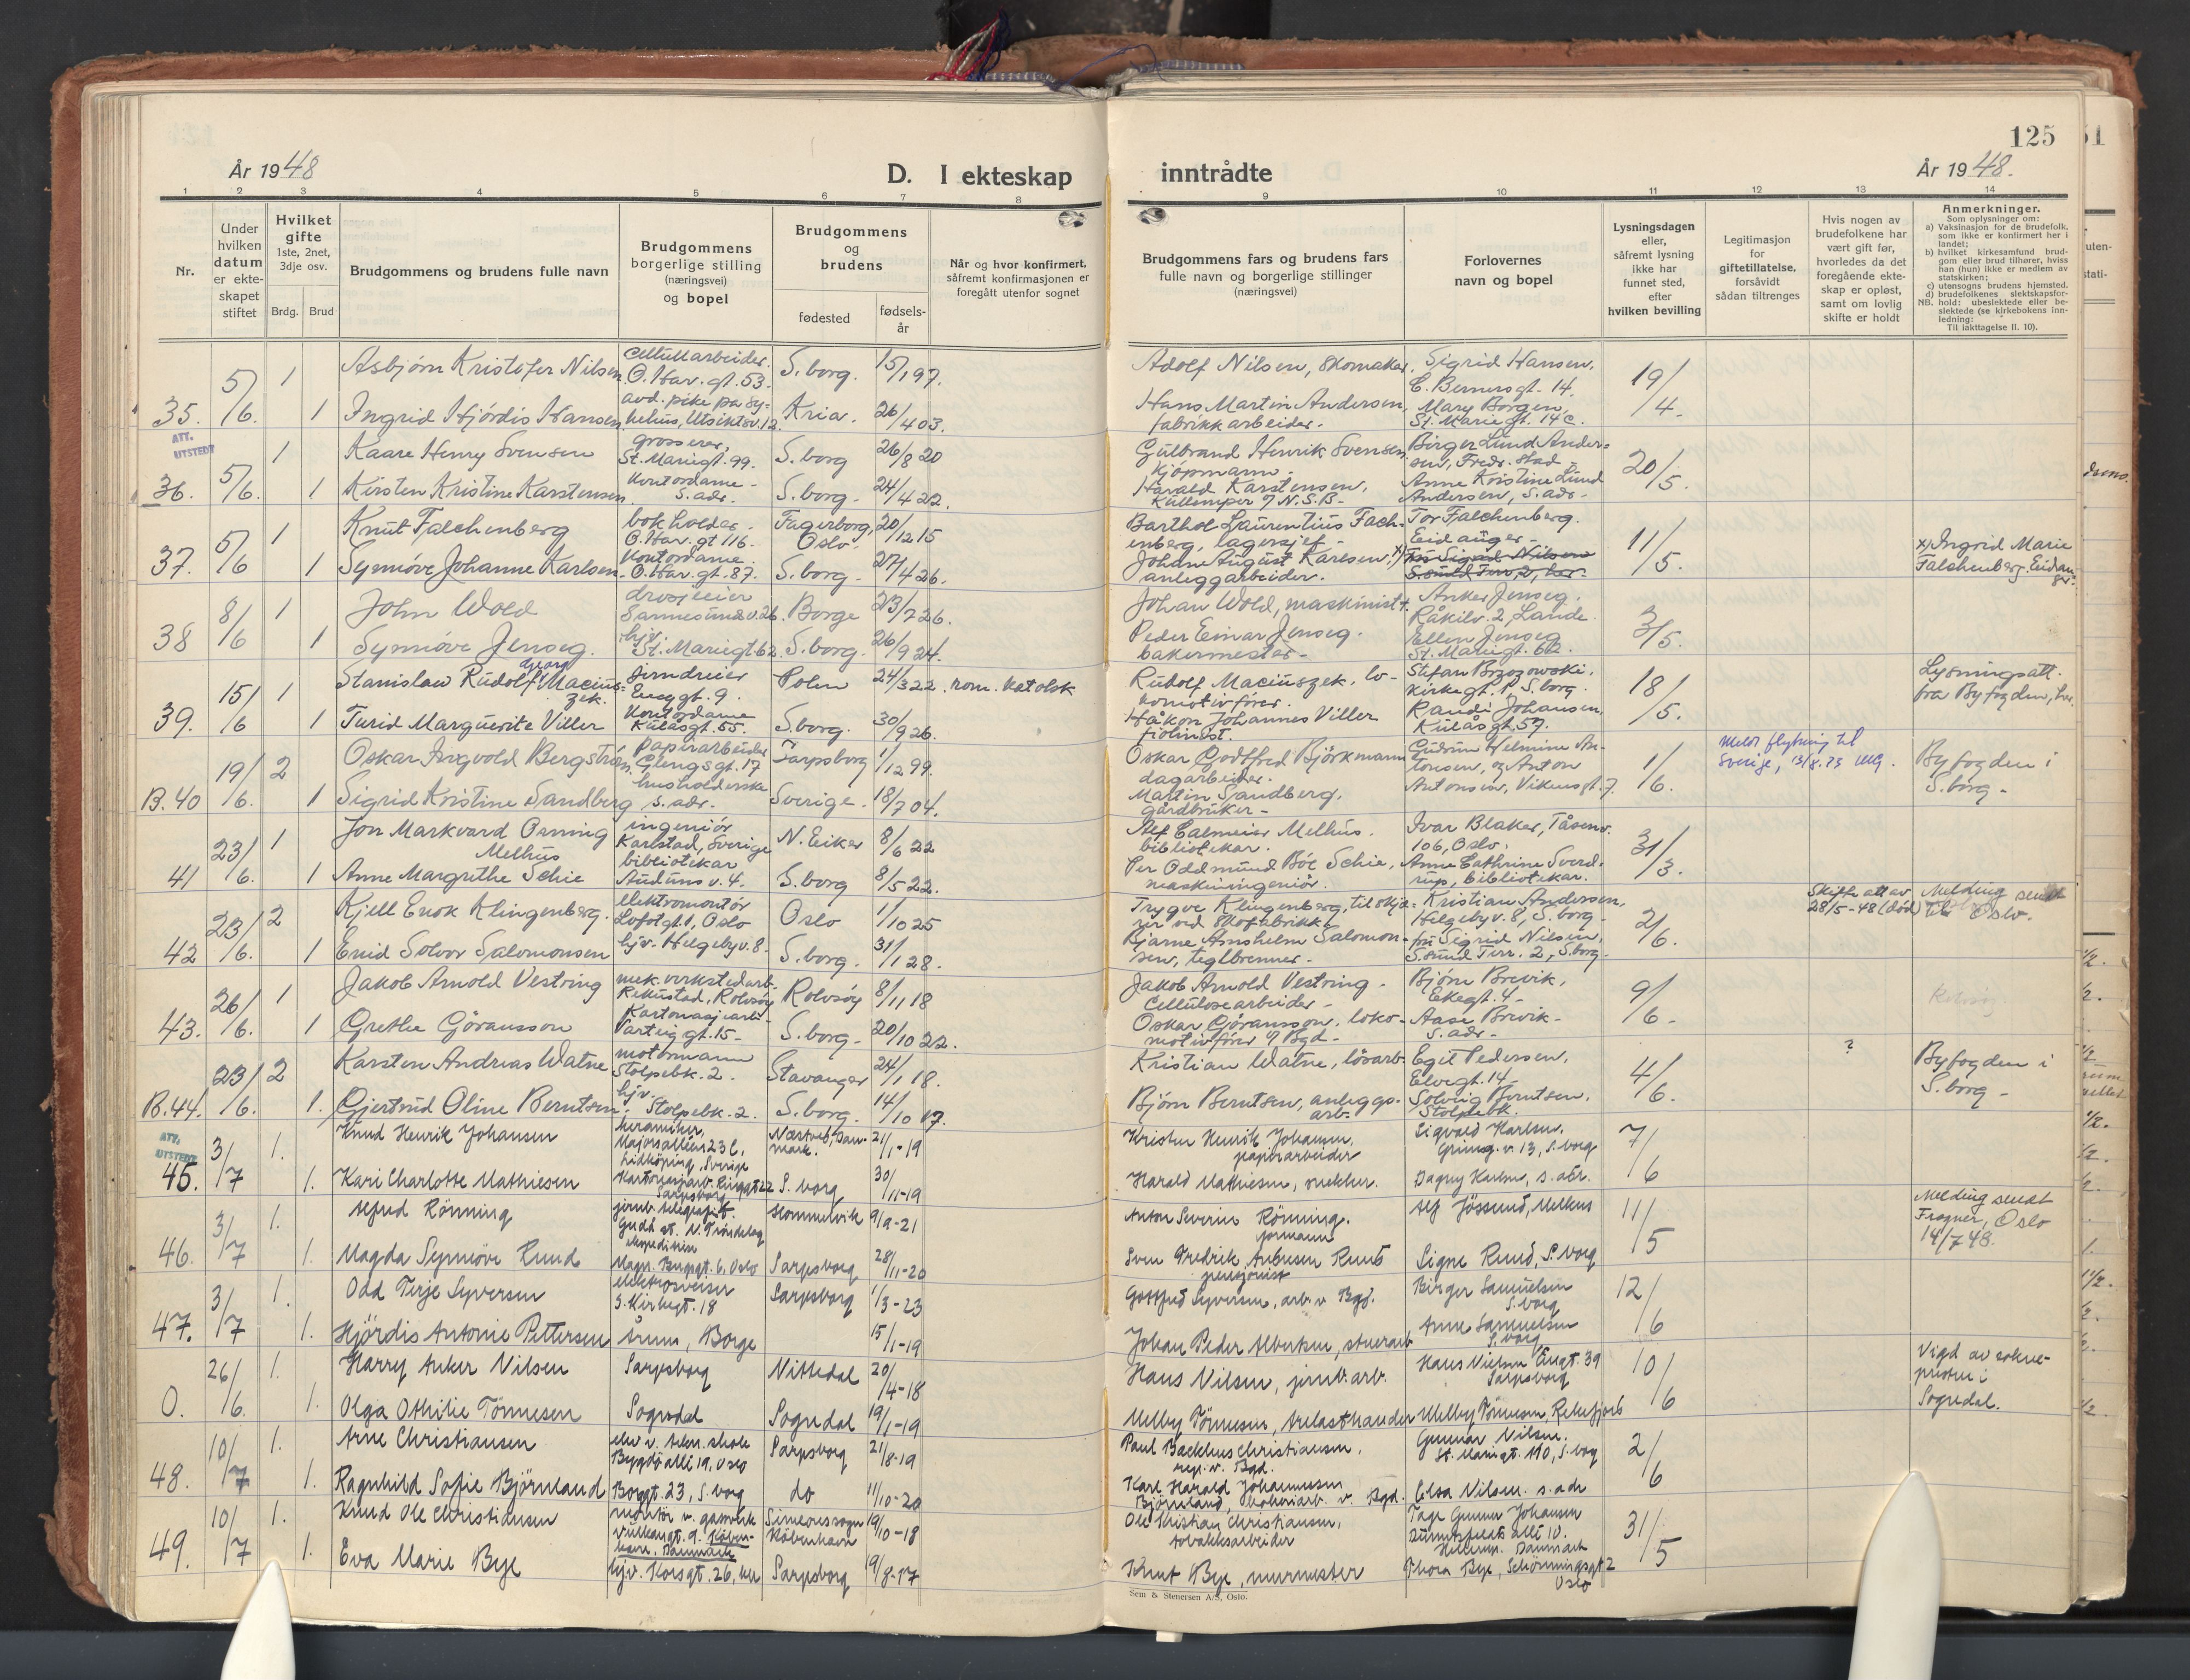 125
År 1948
D. I ekteskap
inntrådte
År 1948.
1 2 3 4 5 6 7 8
9 10 11 12 13 14
Nr.
Under hvilken datum er ekte- skapet stiftet
Hvilket gifte
1ste, 2net, 3dje osv.
Brdg. Brud
Brudgommens og brudens fulle navn
Brudgommens borgerlige stilling (næringsvei) og bopel
Brudgommens og brudens
fødested
fødsels- år
Når og hvor konfirmert, såfremt konfirmasjonen er foregått utenfor sognet
Brudgommens fars og brudens fars fulle navn og borgerlige stillinger (næringsvei)
Forlovernes navn og bopel
Lysningsdagen eller, såfremt lysning ikke har funnet sted, efter hvilken bevilling
Legitimasjon for giftetillatelse, forsåvidt sådan tiltrenges
Hvis nogen av brudefolkene har vært gift før, hvorledes da det foregående ekte- skap er opløst, samt om lovlig skifte er holdt
Anmerkninger.
Som oplysninger om:
a) Vaksinasjon for de brudefolk, som ikke er konfirmert her i landet;
b) hvilket kirkesamfund brud- gom eller brud tilhører, hviss han (hun) ikke er medlem av statskirken;
c) utensogns brudens hjemsted.
d) brudefolkenes slektskapsfor-
NB. hold: ubeslektede eller be- slektede (se kirkebokens inn- ledning:
Til iakttagelse II. 10).
35. 5/6. 1 Asbjørn Kristofer Nilsen cellullarbeider. O. Hav. gt. 53. S. borg. 15/1 97. Adolf Nilsen, skomaker. Sigrid Hansen. C. Berners gt. 14. 19/4.
1 Ingrid Hjördis Hansen avd. pike på sy- kehus, Utsiktsv. 12 Kria. 26/4 03. Hans Martin Andersen, fabrikkarbeider. Mary Borgen, St. Marie gt. 14 c.
ATT. UTSTEDT
36. 5/6. 1 Kaare Henry Svensen grosserer, St. Mariegt. 99. S. borg 26/8 20 Gulbrand Henrik Svensen kjöpmann. Birger Lund Ander- sen, Fredr. stad 20/5.
1 Kirsten Kristine Karstensen Kontordame - S. adr. S. borg - 24/4 22. Harald Karstensen, Anne Kristine Lund Andersen, s. adr.
37. 5/6 1 Knut Falchenberg bokholder. O. Hav. gt 116. Fagerborg, Oslo. 20/12 15 Barthol Laurentius Fach- enberg, lagersjef - Tor Falchenberg. Eidanger - 11/5.
1 Synnöve Johanne Karlsen Kontordame. O. Hav. gt. 87. S. borg - 27/4 26. Johan August Karlsen. x) anleggarbeider. Fru Sigrid Nilsen x) Ingrid Marie Falchenberg, Eidan- ger.
38 8/6 1 John Wold drosjeeier Sannesundsv. 26. Borge 23/7 26. Johan Wold, maskinist +. Anker Jenseg. Råkilv. 2, Lande 3/5.
1 Synnöve Jenseg. hjv. St. Mariegt. 62. S. borg. 26/9 24. Peder Einar Jenseg. bakermester - Ellen Jenseg St. Mariegt. 62.
39. 15/6 1 Stanislaw Rudolf Georg Macius- zek. jerndreier Enggt. 9. Polen 24/3 22. rom. katolsk Rudolf Maciuszek. lo- komotivförer. Stefan Brzozowski. Kirkegt. 18 S. borg. 18/5. Lysningsatt. fra Byfogden, her.
1 Turid Marguerite Viller Kontordame Kulåsgt. 55. S. borg. 30/9 26. Håkon Johannes Viller fiolinist. Randi Johansen, Kulåsgt. 57.
B. 40 19/6. 2 Oskar Ingvold Bergström papirarbeider Glengsgt. 17 Sarpsborg 1/12 99. Oskar Godtfred Björkmann dagarbeider. Gudrun Helmine An- tonsen, og Anton Antonsen, Vikensgt. 7. 1/6. Meldt flytning til Sverige, 13/8. 73 Byfogden i S. borg -
1 Sigrid Kristine Sandberg husholderske s. adr. Sverige. 18/7 04. Martin Sandberg, gårdbruker -
41 23/6. 1 Jon Markvard Orning Melhus ingeniör Karlstad, Sverige N. Eiker 8/6 22 Alf Calmeier Melhus. bibliotekar. Ivar Blaker, Tåsenv. 106, Oslo. 31/3.
1 Anne Margrethe Schie bibliotekar Auduns v. 4. S. borg 8/5 22. Per Oddmund Böe Schie, maskiningeniör. Anne Cathrine Sverd- rup, bibliotekar.
42 23/6. 2 Kjell Enok Klingenberg. elektromontör Lofotgt. 1, Oslo Oslo 1/10 25 Trygve Klingenberg, tilskjæ- rer ved skofabrikk. Kristian Andersen, Helgebyv. 8, S. borg - 2/6. Skifte att av 28/5-48 (död) Melding sendt til Oslo.
1 Enid Solvor Salomonsen hjv. Helgebyv. 8. S. borg. 31/1 28. Bjarne Arnsholm Salomon- sen, teglbrenner. - fru Sigrid Nilsen, S.sund Terr. 2, S.borg -
43. 26/6. 1 Jakob Arnold Vestring mek. verkstedarb. Rolvsöy Rolvsöy 8/11 18 Jakob Arnold Vestring. Cellulosearbeider - Björn Brevik, Ekegt. 4 - 9/6 -
1 Grethe Göransson Kartonasjearb. Varteiggt. 15 - S. borg - 20/10 22. Oskar Göransson, loko- motivförer v/ Bgd - Aase Brevik - S. adr -
B. 44. 23/6. 2 Karsten Andreas Watne motormann Stolpebk. 2. Stavanger 24/1 18. Kristian Watne, lösarb. Egil Pedersen, Elvegt. 14 4/6. ? Byfogden i S. borg -
1. Gjertrud Oline Berntsen hjv. Stolpebk. 2. S. borg. 14/10 17. Björn Berntsen, anleggs- arb. Solveig Berntsen, Stolpebk.
ATT. UTSTEDT
45. 3/7 1. Knud Henrik Johansen keramiker, Majorsalléen 23 C, Lidköping, Sverige Næstved, Dan- mark. 21/1-19 Kristen Henrik Johansen, papirarbeider Sigvald Karlsen, 13, S. borg 7/6
1. Kari Charlotte Mathiesen Sarpsborg S. borg 30/11-19 Harald Mathiesen, snekker. Dagny Karlsen, s. adr.
46. 3/7 1. Alfred Rönning jernb. telegrafist. Gudå st. N. Tröndelag Hommelvik 9/9-21 Anton Severin Rönning. formann Alf Jössund, Melhus 11/5 Melding sendt Frogner, Oslo 14/7 48.
1. Magda Synnöve Ruud 6, Oslo Sarpsborg 28/11-20 Sven Fredrik Ruud pensjonist Signe Ruud, S. borg
47. 3/7 1. Odd Terje Syversen elektrosveiser S. Kirkegt. 18 Sarpsborg 1/3-23 Gottfred Syversen, arb. v Bgd. Birger Samuelsen S. borg 12/6
1. Hjördis Antonie Pettersen Årum, Borge 15/1-19 Johan Peder Albertsen, Anne Samuelsen S. borg
0. 26/6. 1. Harry Anker Nilsen Sarpsborg Nittedal 20/4-18 Hans Nilsen, jernb. arb. Hans Nielsen Engt. 39 Sarpsborg 10/6 Vigd av sokne- presten i Sogndal.
1. Olga Othilie Tönnesen Sogndal Sogndal 19/1-19 Melby Tönnesen, trelasthandler Melby Tönnesen, Rekefjord
48. 10/7 1. Arne Christiansen elev v. tekn. skole Bygdö allé 19, Oslo Sarpsborg 21/8-19 Paul Backhus Christiansen, rep. v. Bgd. Gunnar Nilsen. St. Mariegt. 110, S. borg 2/6
1. Ragnhild Sofie Björneland Borggt. 23, S. borg do 11/10-20 Karl Harald Johannessen Björneland, v. Bgd. Elsa Nilsen. s. adr
49. 10/7 1. Knud Ole Christiansen montör v. gassverk Vulkangt. 9. Köben- havn. Danmark Simeonssogn København 19/10-18 Ole Kristian Christiansen, tobakksarbeider Tage Gunnar Johansen Danmark 31/5
1. Eva Marie Bye hjv. Korsgt. 26, her Sarpsborg 19/8-17 Knut Bye, murmester Thora Bye, Schönningsgt 2 Oslo
Sem & Stenersen A/S, Oslo.